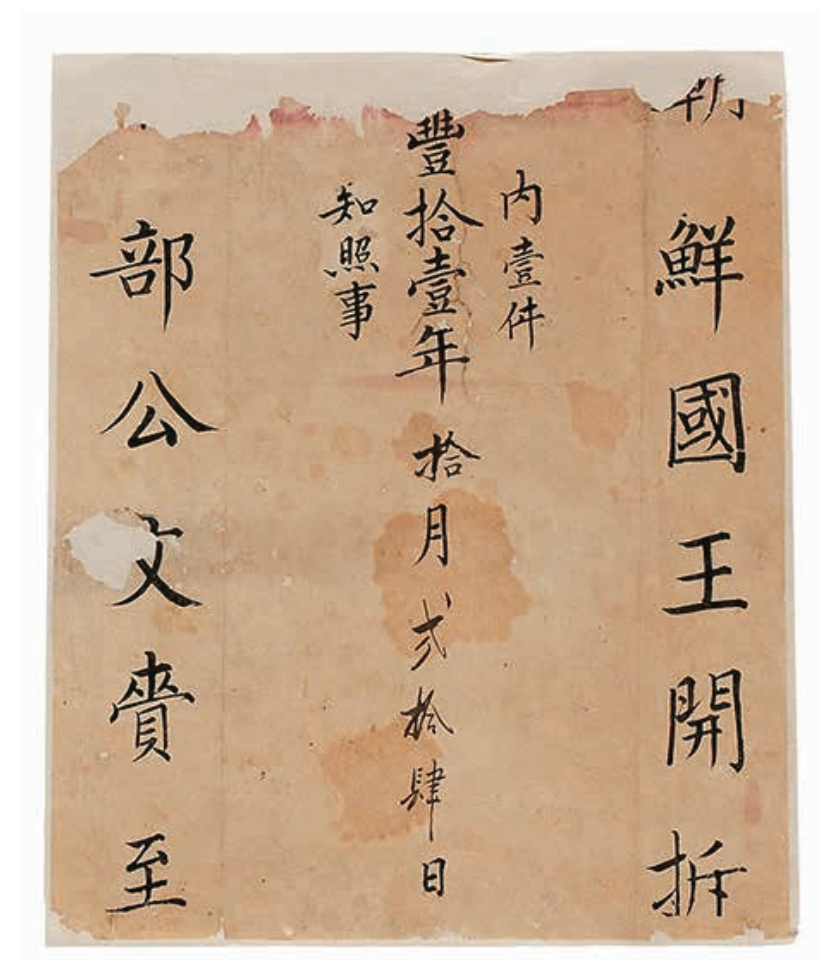 鮮國王開拆
内壹件
豐拾壹年拾月弍拾肆日
知照事
部公文賫至